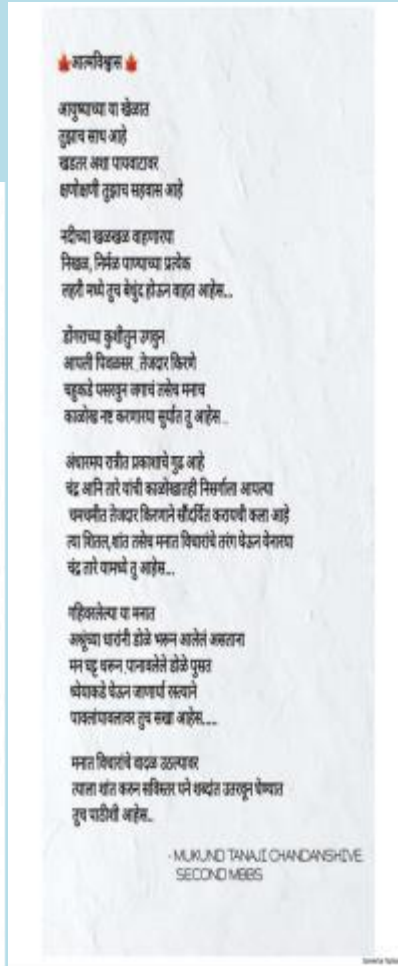 🍁आत्मविश्वास🍁
आयुष्याच्या या खेळात
तुझाच साथ आहे
खडतर अशा पायवाटावर
क्षणोक्षणी तुझाच सहवास आहे
नदीच्या खळखळ वाहणारया
निखळ, निर्मळ पाण्याच्या प्रत्येक
लहरी मध्ये तुच बेधुंद होऊन वाहत आहेस...
डोंगराच्या कुशीतुन उगवुन
आपली पिवळसर, तेजदार किरणे
चहुकडे पसरवुन जगाचं तसेच मनाच
काळोख नष्ट करणारया सुर्यात तु आहेस..
अंधारमय रात्रीत प्रकाशाचे गुढ आहे
चंद्र आनि तारे यांची काळोखातही निसर्गाला आपल्या
चमचमीत तेजदार किरणाने सौंदर्यित करायची कला आहे
त्या शितल,शांत तसेच मनात विचारांचे तरंग घेऊन येनारया
चंद्र तारे यामध्ये तु आहेस...
गहिवरलेल्या या मनात
अश्रूंच्या धारांनी डोळे भरून आलेलं असताना
मन घट्ट धरून, पानावलेले डोळे पुसत
ध्येयाकडे घेऊन जाणार्या रस्त्याने
पावलांपावलावर तुच सखा आहेस.....
मनात विचारांचे वादळ उठल्यावर
त्याला शांत करुन सविस्तर पने शब्दांत उतरवून घेण्यात
तुच पाठीशी आहेस..
- MUKUND TANAJI CHANDANSHIVE
SECOND MBBS